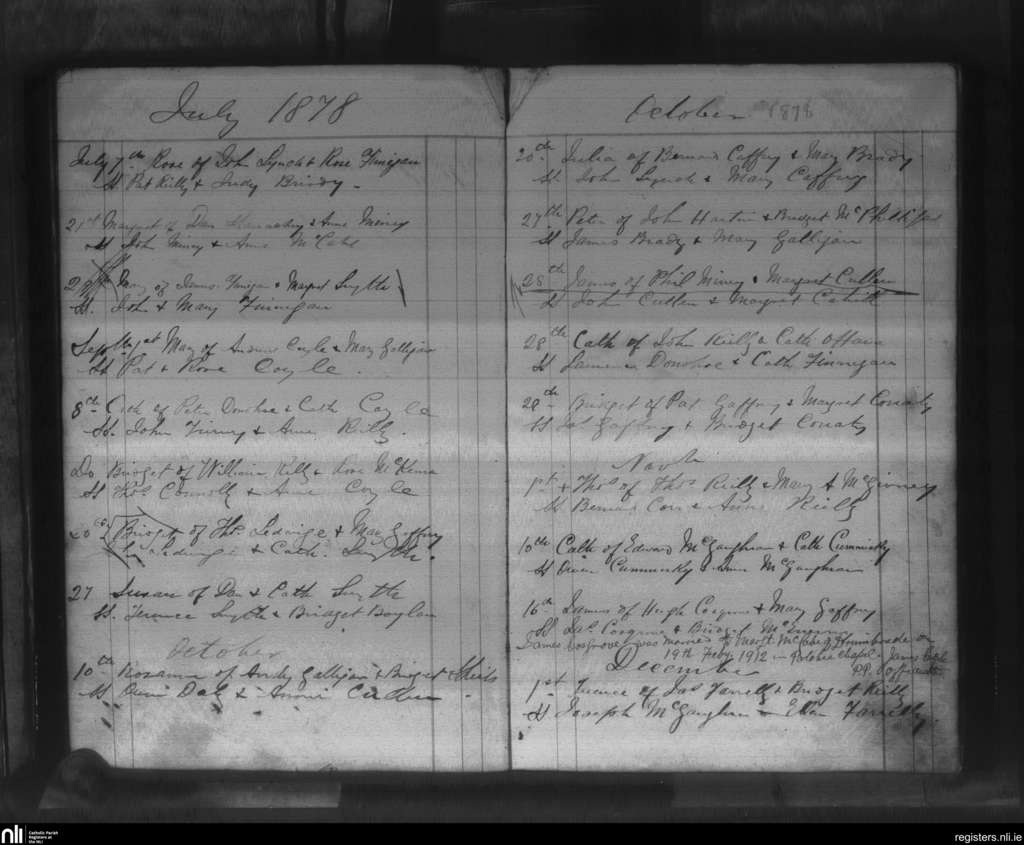 July 1878
July 7th Rose of Joh Lynch & Rose Finigan
SS Pat Reilly & Judy Briody -
21st Margaret of Dan & Anne Miney
SS John Miney & Anne McCabe
Mary of James Finigan & Margret Smythe
SS. John & Mary Finnegan
Sept 1st Mary of Andrew Coyle & Mary Galligan
SS Pat & Rose Coyle.
8th Cath of Peter Donohoe & Cath Coyle
SS. John & Anne Reilly.
Do Bridget of William Reilly & Rose McKenna
SS Thos Connolly & Anne Coyle
20th Bridget of Thos Ledwige & Mary Gaffney
Ledwige & Cath. Smythe.
27 Susan of Dan & Cath Smythe
SS. Terence Smythe & Bridget Boylan
October
10th Rosanna of Andy Galligan & Bridget Shiels
SS Owen Daly & Annie Cullen
October 1878
20th Julia of Bernard Caffrey & Mary Brady
SS. John Lynch & Mary Caffrey
27th Peter of John Hartin & Bridget McPhillips
SS James Brady & Mary Galligan
28th James of Phil Miney & Margaret Cullen
SS John Cullen & Margret Cahill
28th Cath of John Reilly & Cath
SS Donohoe & Cath Finnegan
Bridget of Pat Gaffney & Margret Conaty
SS Jas Gaffney & Bridget Conaty
Novbr
1st + Thos of Thos Reilly & Mary A McGivney
SS Bernard Corr & Anne Reilly
10th Cath of Edward McGaughran & Cath Cummisky
SS Owen Cummisky & Anne McGaughran
16th James of Hugh Cosgrove & Mary Gaffney
SS Jas. Cosgrove & Bridget
James Cosgrove was married to Margt. McCabe of on
19th Feby 1912 in chapel - James
December P.P.
1st Terence of Jas Farrelly & Bridget Reilly
SS Joseph McGaughran & Ellen Farrelly
nli
Catholic Parish
Registers at
the NLI
registers.nli.ie